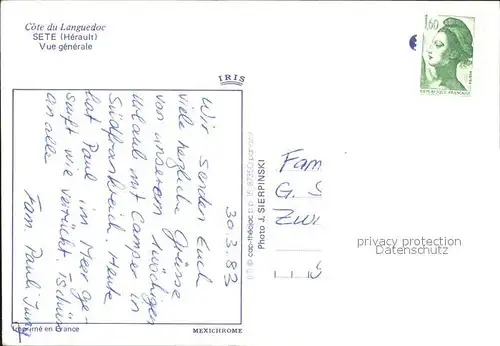 Côte du Languedoc
SETE (Hérault)
Vue générale
IRIS
1,60
REPUBLIQUE FRANÇAISE
30.3.83
Wir senden Euch
viele herzliche Grüsse
von unserem
Urlaub mit Camper in
Südfrankreich. Heute
hat Paul im Meer ge-
surft wie verrückt. Tschüss
an alle
Fam. Pauli Jung
© cap-théojac
Photo J. SIERPINSKI
Fam
G. S
ZW
privacy protection
Datenschutz
Imprimé en France
MEXICHROME